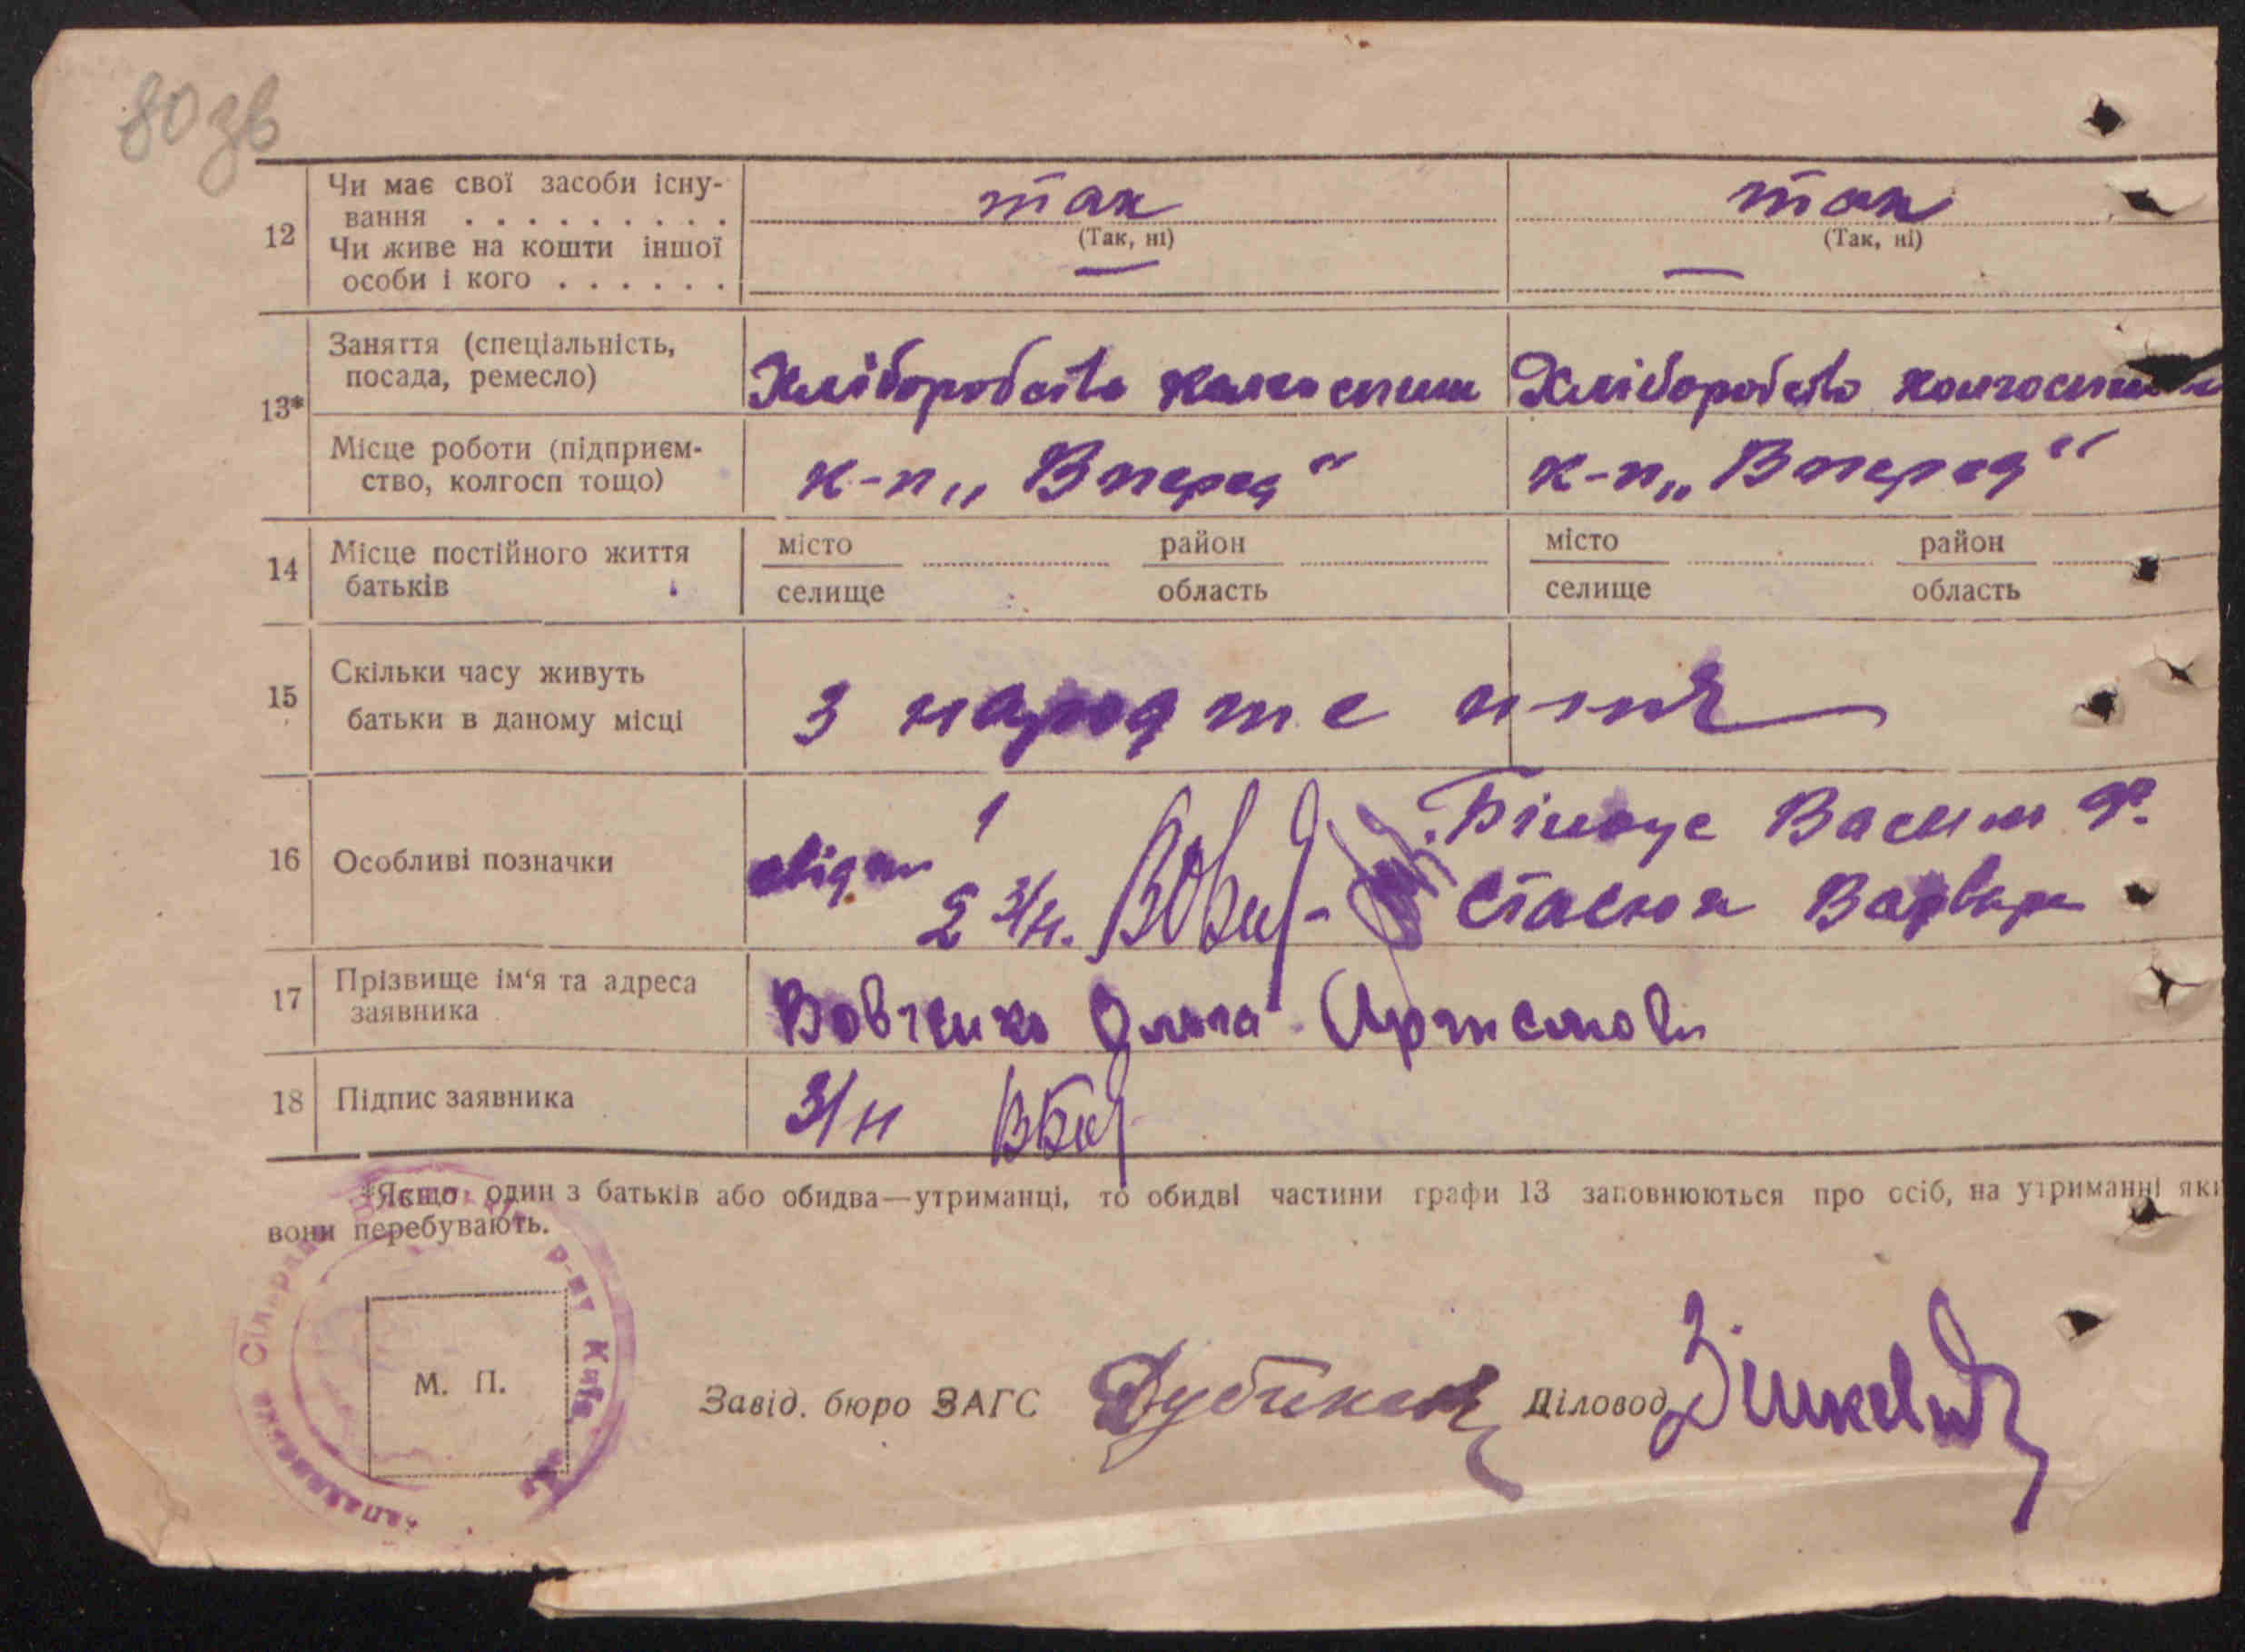 80 зв
12 Чи має свої засоби існування . . . . . . . . . так так
(Так, ні) (Так, ні)
Чи живе на кошти іншої особи і кого . . . . . . — —
13* Заняття (спеціальність, посада, ремесло) Хліборобство колгоспник Хліборобство
Місце роботи (підприємство, колгосп тощо) к-п „Вперед“ к-п „Вперед“
14 Місце постійного життя батьків
місто район місто район
селище область селище область
15 Скільки часу живуть батьки в даному місці з народження
16 Особливі позначки свідки 1 Василь
2 з/н. Стасюк Варвара
17 Прізвище ім‘я та адреса заявника Вовченко Ольга
18 Підпис заявника з/н
*Якщо один з батьків або обидва—утриманці, то обидві частини графи 13 заповнюються про осіб, на утриманні які
вони перебувають.
М. П.
Завід. бюро ЗАГС Діловод